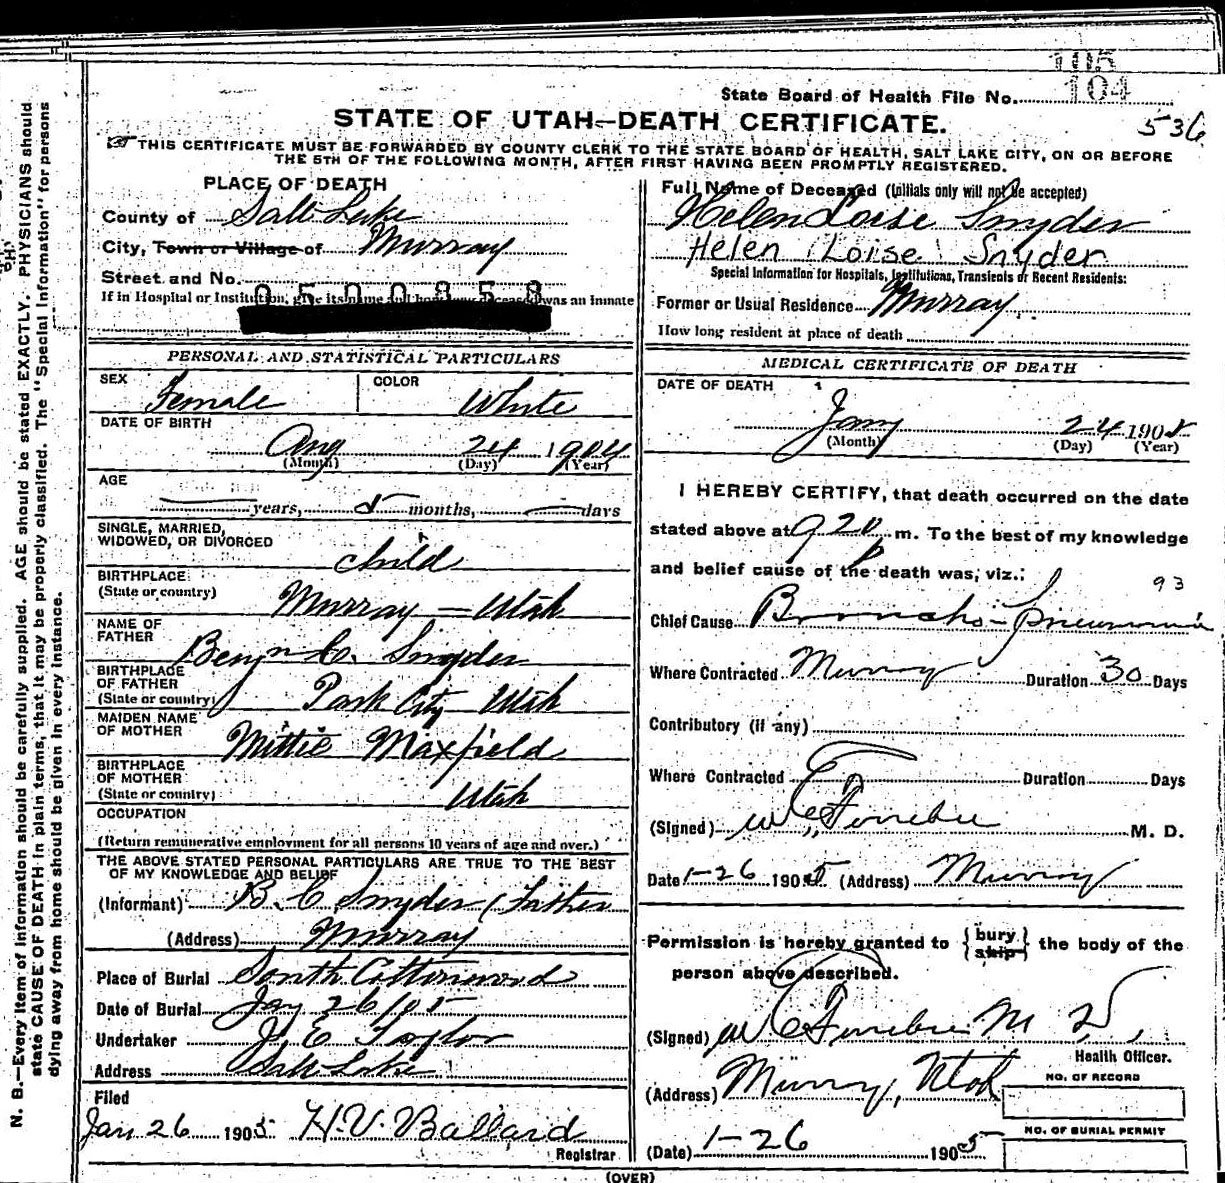 105
104
State Board of Health File No.
536
STATE OF UTAH—DEATH CERTIFICATE.
THIS CERTIFICATE MUST BE FORWARDED BY COUNTY CLERK TO THE STATE BOARD OF HEALTH, SALT LAKE CITY, ON OR BEFORE
THE 5TH OF THE FOLLOWING MONTH, AFTER FIRST HAVING BEEN PROMPTLY REGISTERED.
PLACE OF DEATH
County of Salt Lake
City, Town or Village of Murray
Street and No.
0500858
If in Hospital or Institution, give its name and how long deceased was an inmate
Full Name of Deceased (Initials only will not be accepted)
Helen Loise Snyder
Helen (Loise) Snyder
Special Information for Hospitals, Institutions, Transients or Recent Residents:
Former or Usual Residence Murray
How long resident at place of death
PERSONAL AND STATISTICAL PARTICULARS
SEX Female COLOR White
DATE OF BIRTH
Aug 24 1904
(Month) (Day) (Year)
AGE
years, 5 months, days
SINGLE, MARRIED,
WIDOWED, OR DIVORCED child
BIRTHPLACE
(State or country) Murray — Utah
NAME OF
FATHER Benjn C. Snyder
BIRTHPLACE
OF FATHER
(State or country) Park City Utah
MAIDEN NAME
OF MOTHER Mittie Maxfield
BIRTHPLACE
OF MOTHER
(State or country) Utah
OCCUPATION
(Return remunerative employment for all persons 10 years of age and over.)
THE ABOVE STATED PERSONAL PARTICULARS ARE TRUE TO THE BEST
OF MY KNOWLEDGE AND BELIEF
(Informant) B. C. Snyder (Father
(Address) Murray
Place of Burial South Cottonwood
Date of Burial Jay 26/05
Undertaker J. E. Taylor
Address Salt Lake
Filed
Jan 26 1905 H.V. Ballard
Registrar
MEDICAL CERTIFICATE OF DEATH
DATE OF DEATH
Jany 24 1905
(Month) (Day) (Year)
I HEREBY CERTIFY, that death occurred on the date
stated above at 920 p m. To the best of my knowledge
and belief cause of the death was, viz.:
93
Chief Cause Broncho-Pneumonia
Where Contracted Murray Duration 30 Days
Contributory (if any)
Where Contracted Duration Days
(Signed) M. D.
Date 1-26 1905 (Address) Murray
Permission is hereby granted to {bury ship} the body of the
person above described.
(Signed) M D,
Health Officer.
(Address) Murray, Utah
NO. OF RECORD
NO. OF BURIAL PERMIT
(Date) 1-26 1905
(OVER)
N. B.—Every item of information should be carefully supplied. AGE should be stated EXACTLY. PHYSICIANS should
state CAUSE OF DEATH in plain terms, that it may be properly classified. The "Special Information" for persons
dying away from home should be given in every instance.